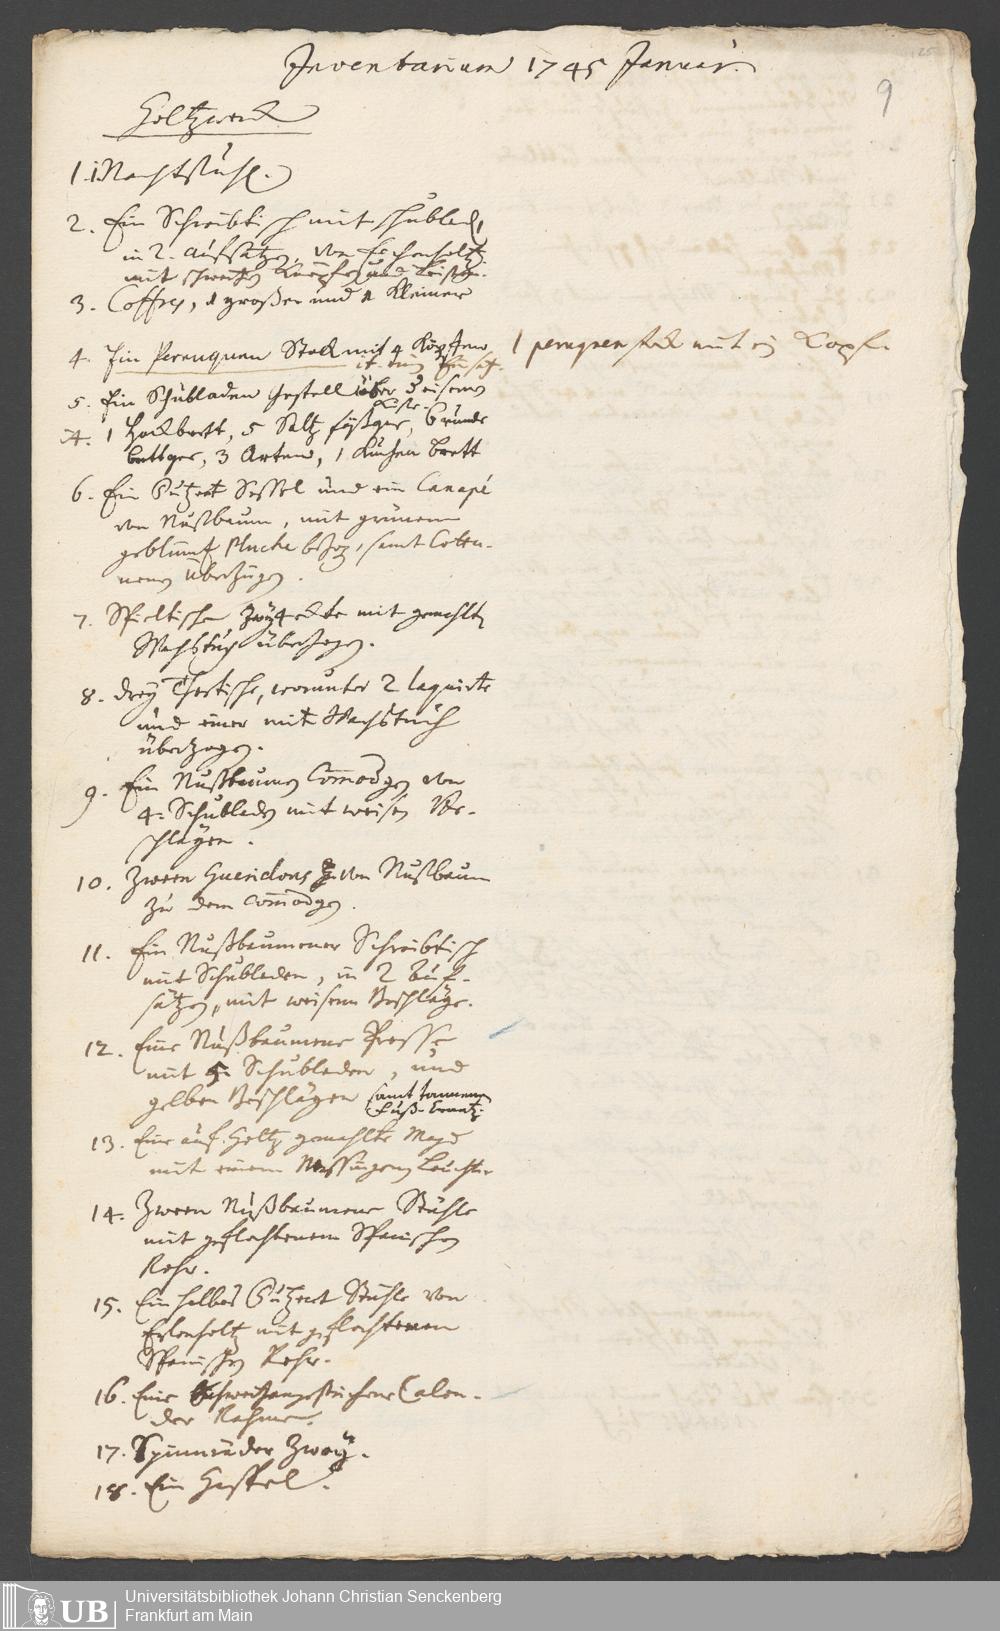 Inventarium 1745 Januar.
9
Holtzwerck
1. 1 Nachtstuhl.
2. Ein Schreibtisch mit schubled,
in 2. aufsätzen, von Eichenholtz
mit schwartzen Knöpfen und Leisten.
3. Coffres, 1 großer und 1 Kleiner
4. Ein Peruquen Stock mit 4 Köpfen
1 peruquen stock mit ein Kopf.
it. ein
5. Ein Schubladen Gestell über 3 eiserne
Kiste.
it. 1 Hackbrett, 5 Saltz fäßger, 6 runde
brettger, 3 Arten, 1 Kuchen brett
6. Ein Dutzent Sessel und ein Canapé
von Nußbaum, mit grünem
geblümt Pluche bezog, samt Cottu-
nenen Überzügen.
7. Spieltische zwey 4 eckte mit gemahlten
Wachstuch überzogen.
8. drey Theetische, worunter 2 laquirte
und einer mit Wachstuch
überzogen.
9. Ein Nußbaumen Commodgen von
4. Schubladen mit weisen Be-
schlägen.
10. Zween Gueridons von Nußbaum
zu dem Commodgen.
11. Ein Nußbaumener Schreibtisch
mit Schubladen, in 2 Auf-
sätzen, mit weisem Beschläge.
12. Eine Nußbaumene Presse
mit 5. Schubladen, und
gelben Beschlägen samt tannenen
Fuß-
13. Eine auf Holtz gemahlte Magd
mit einem Messingenen Leuchter
14. Zween Nußbaumene Stühle
mit geflochtenem Spanischen
Rohr.
15. Ein halbes Dutzent Stühle von
Erlenholtz mit geflochtenem
Spanischen Rohr.
16. Eine schwartzangestrichene Calen-
der Rahme.
17. Spinnräder Zwey.
18. Ein Haspel.
UB
Universitätsbibliothek Johann Christian Senckenberg
Frankfurt am Main